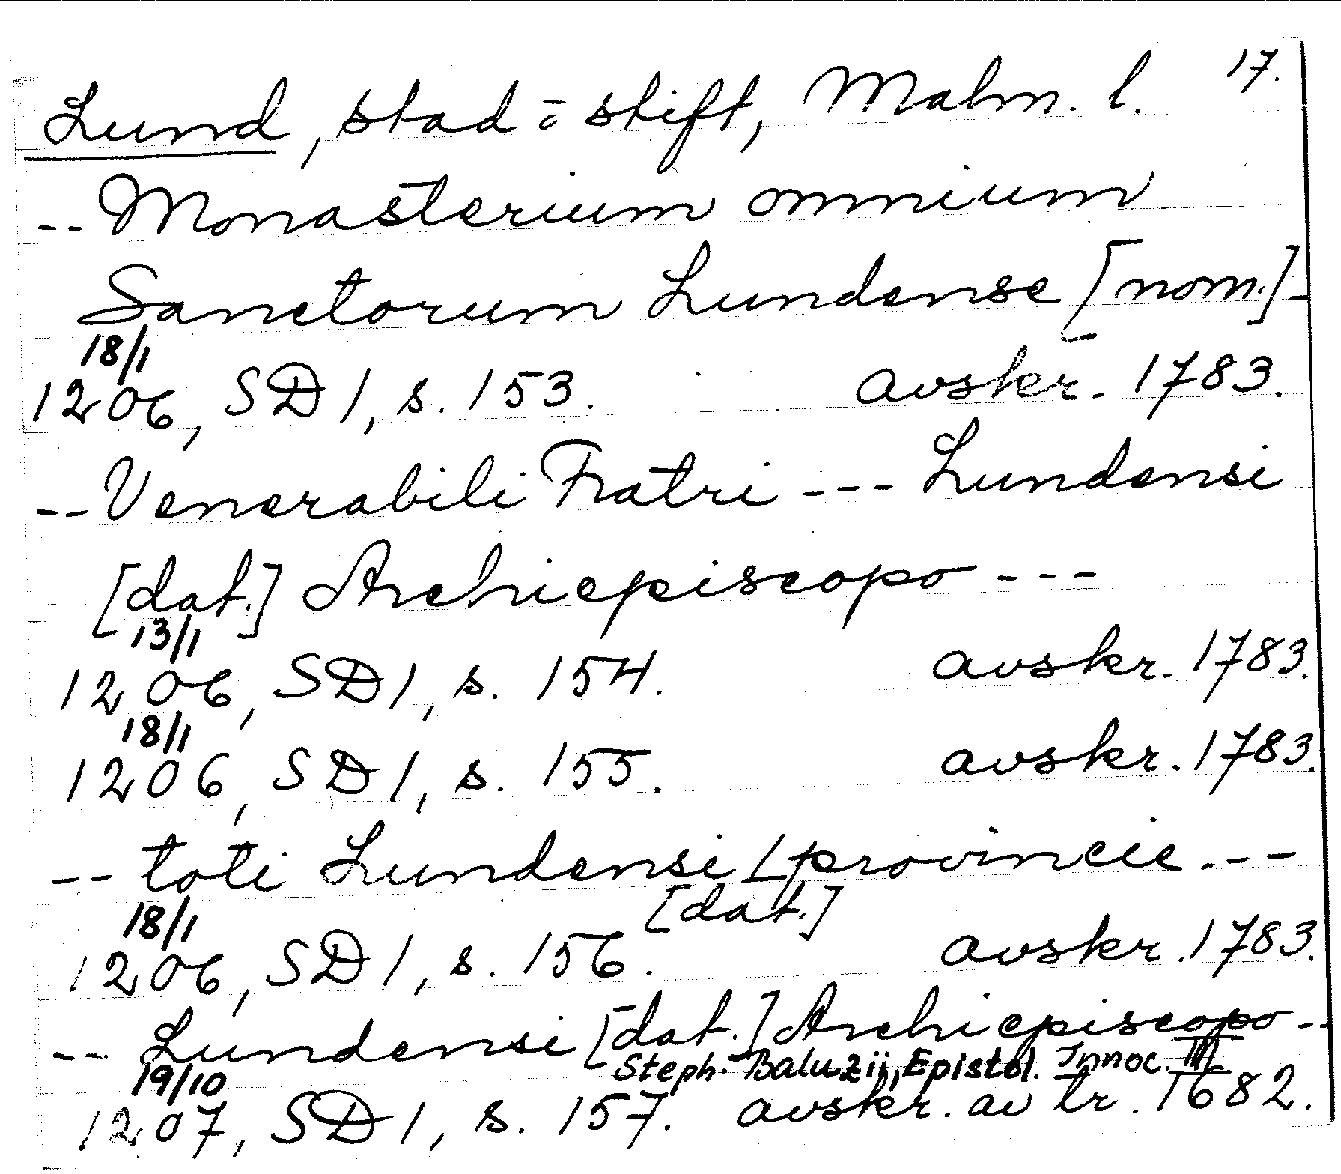 17.
Lund, stad o. stift, Malm. l.
-- Monasterium omnium
Sanctorum Lundense [nom.] -
18/1
1206, SD 1, s. 153. avskr. 1783.
-- Venerabili Fratri --- Lundensi
[dat.] Archiepiscopo ---
13/1
1206, SD 1, s. 154. avskr. 1783.
18/1
1206, SD 1, s. 155. avskr. 1783.
-- toti Lundensi / provincie ---
[dat.]
18/1
1206, SD 1, s. 156. avskr. 1783.
-- Lundensi [dat.] Archiepiscopo --
19/10 Steph. Baluzii, Epistol. Innoc. III
1207, SD 1, s. 157. avskr. av tr. 1682.